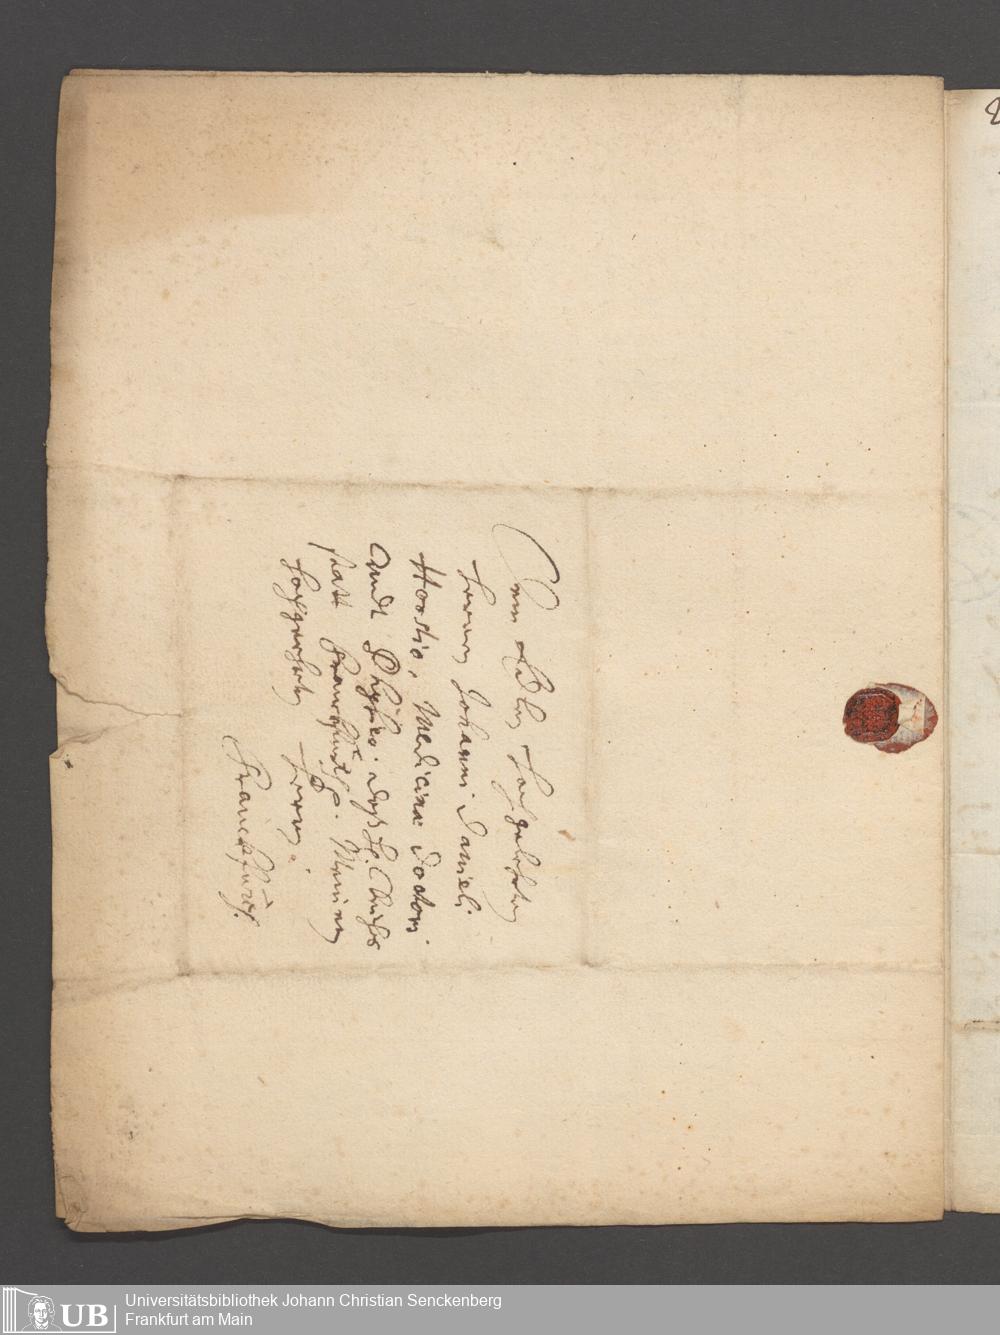 Dem Edlen Hochgelehrten
Herren Johanni Danieli
Horstio, Medicinæ Doctori
Undt Physico. deß H. Reichs
statt Franckfurth. Meinem
hochgeehrten Herren.
Franckfurth.
UB
Universitätsbibliothek Johann Christian Senckenberg
Frankfurt am Main